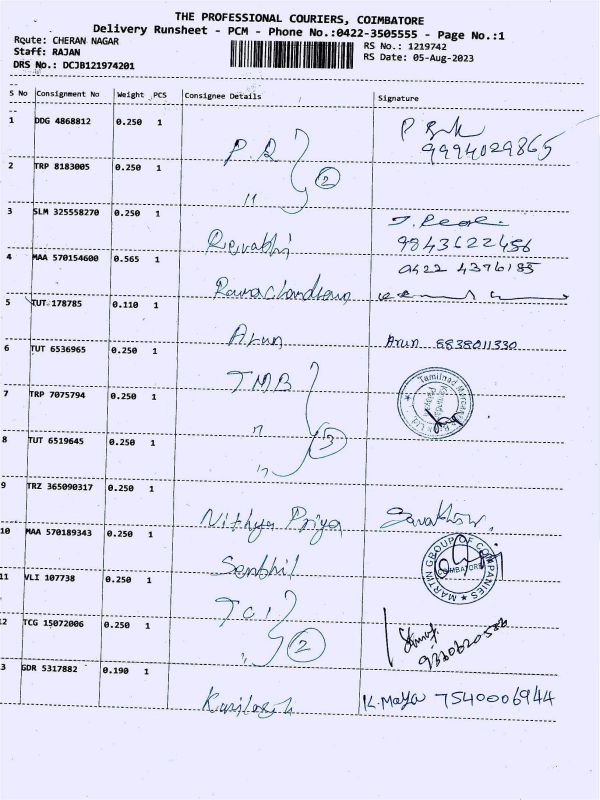 THE PROFESSIONAL COURIERS, COIMBATORE
Delivery Runsheet - PCM - Phone No.:0422-3505555 - Page No.:1
Route: CHERAN NAGAR
RS No.: 1219742
Staff: RAJAN
RS Date: 05-Aug-2023
DRS No.: DCJB121974201
S No Consignment No Weight PCS Consignee Details Signature
1 DDG 4868812 0.250 1 P.R
9994029865
2 TRP 8183005 0.250 1 11 2
3 SLM 325558270 0.250 1 Revathi
9843622456
4 MAA 570154600 0.565 1 Ramachandran
0422 4376185
5 TUT 178785 0.110 1 Arun Arun 8838011330
6 TUT 6536965 0.250 1 TMB
Tamilnad Mercantile Bank Ltd
7 TRP 7075794 0.250 1 " 3
8 TUT 6519645 0.250 1 "
9 TRZ 365090317 0.250 1 Nithya Priya
10 MAA 570189343 0.250 1 Senthil
MARTIN GROUP OF COMPANIES
COIMBATORE
11 VLI 107738 0.250 1 TCI
12 TCG 15072006 0.250 1 " 2
9360620586
3 GDR 5317882 0.190 1 Kailash K.Maya 7540006944